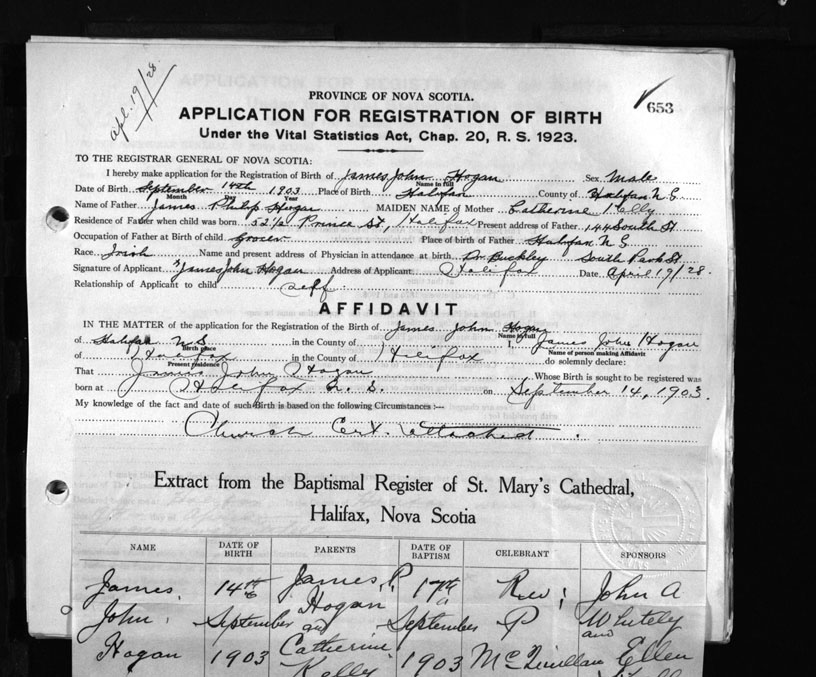 apl. 19/28.
653
PROVINCE OF NOVA SCOTIA.
APPLICATION FOR REGISTRATION OF BIRTH
Under the Vital Statistics Act, Chap. 20, R. S. 1923.
TO THE REGISTRAR GENERAL OF NOVA SCOTIA:
I hereby make application for the Registration of Birth of James John Hogan Sex Male
Name in full
Date of Birth September 14th 1903 Place of Birth Halifax County of Halifax N.S.
Month Year
Name of Father James Philip Hogan MAIDEN NAME of Mother Catherine Kelly
Residence of Father when child was born 52½ Prince St., Halifax Present address of Father 144 South St
Occupation of Father at Birth of child Grocer Place of birth of Father Halifax N S
Race Irish Name and present address of Physician in attendance at birth Dr. Buckley South Park St
Signature of Applicant James John Hogan Address of Applicant Halifax Date April 19/28.
Relationship of Applicant to child self
AFFIDAVIT
IN THE MATTER of the application for the Registration of the Birth of James John Hogan
Name in full
of Halifax N S in the County of I, James John Hogan
Birth place Name of person making Affidavit
of Halifax in the County of Halifax do solemnly declare:
Present residence
That James John Hogan Whose Birth is sought to be registered was
born at Halifax N. S. on September 14, 1903.
My knowledge of the fact and date of such Birth is based on the following Circumstances :—
Church Cert. attached.
Extract from the Baptismal Register of St. Mary's Cathedral,
Halifax, Nova Scotia
NAME DATE OF BIRTH PARENTS DATE OF BAPTISM CELEBRANT SPONSORS
James, 14th James P. 17th Rev; John A
John, September Hogan and September P Whitely and
Hogan 1903 Catherine Kelly 1903 McQuillan Ellen